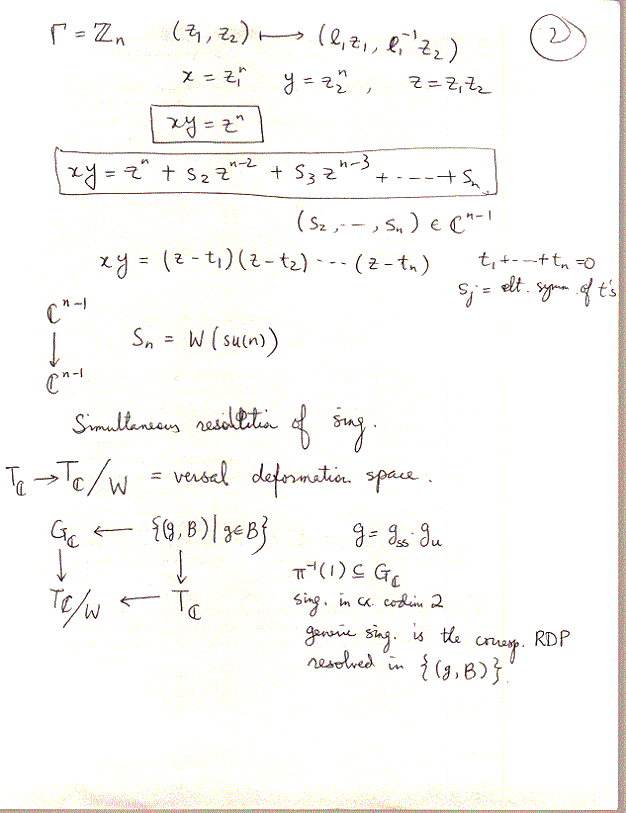 Γ = ℤₙ (z₁, z₂) ⟼ (ℓ₁z₁, ℓ₁⁻¹z₂) 2
x = z₁ⁿ y = z₂ⁿ , z = z₁z₂
xy = zⁿ
xy = zⁿ + s₂zⁿ⁻² + s₃zⁿ⁻³ + ---- + sₙ
(s₂, --, sₙ) ∈ ℂⁿ⁻¹
xy = (z - t₁)(z - t₂) --- (z - tₙ) t₁ + --- + tₙ = 0
sⱼ = elt. symm. of t's
ℂⁿ⁻¹
↓ Sₙ = W(su(n))
ℂⁿ⁻¹
Simultaneous of sing.
T_ℂ → T_ℂ/W = versal deformation space.
G_ℂ ← {(g, B) | g∈B} g = g_ss · g_u
↓ ↓ π⁻¹(1) ⊆ G_ℂ
T_ℂ/W ← T_ℂ sing. in cx. codim 2
generic sing. is the corresp. RDP
resolved in {(g, B)}.